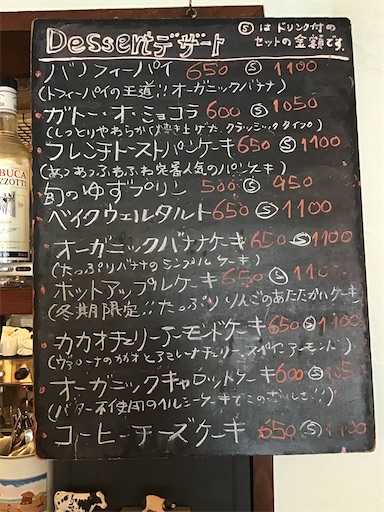 Dessertデザート
Ⓢは ドリンク付の
セットの金額です。
バノフィーパイ 650 Ⓢ 1100
(トフィーパイの王道!! オーガニックバナナ)
ガトー・オ・ショコラ 600 Ⓢ 1050
(しっとりやわらかく焼き上げた、クラッシックタイプ)
フレンチトーストパンケーキ 650 Ⓢ 1100
(あつあつふわふわ定番人気のパンケーキ)
旬のゆずプリン 500 Ⓢ 950
ベイクウェルタルト 650 Ⓢ 1100
オーガニックバナナケーキ 650 Ⓢ 1100
(たっぷりバナナのシンプルケーキ)
ホットアップルケーキ 650 Ⓢ 110
(冬期限定!! たっぷりりんごのあたたかいケーキ)
カカオチェリーアーモンドケーキ 650 Ⓢ 1100
(ヴァローナのカカオとアメレナチェリー、スペインアーモンド)
オーガニックキャロットケーキ 600 Ⓢ 105
(バター不使用のヘルシーケーキでこのおいしさ!!)
コーヒーチーズケーキ 650 Ⓢ 1100
BUCA
ZZOTTI